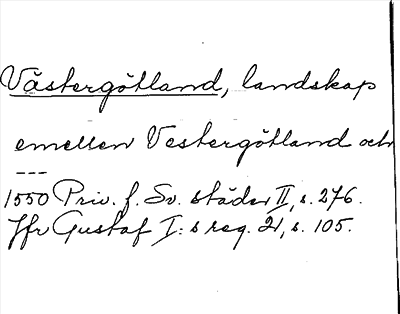 Västergötland, landskap
emellen Vestergötland och
---
1550 Priv. f. Sv. städer II, s. 276.
Jfr Gustaf I:s reg. 21, s. 105.